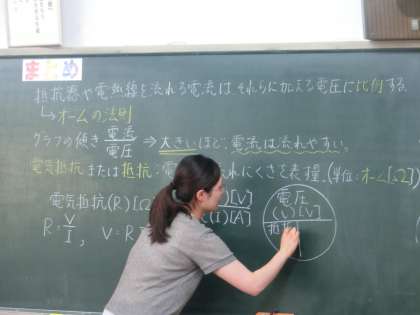 まとめ
抵抗器や電熱線を流れる電流はそれらに加える電圧に比例する。
↳オームの法則
グラフの傾き 電流/電圧 ⇒ 大きいほど、電流は流れやすい。
電気抵抗または抵抗:電 れにくさを表す。(単位:オーム[Ω])
電気抵抗(R)[Ω [V]
(I)[A]
R=V/I, V=R
電圧
(V)[V]
抵抗